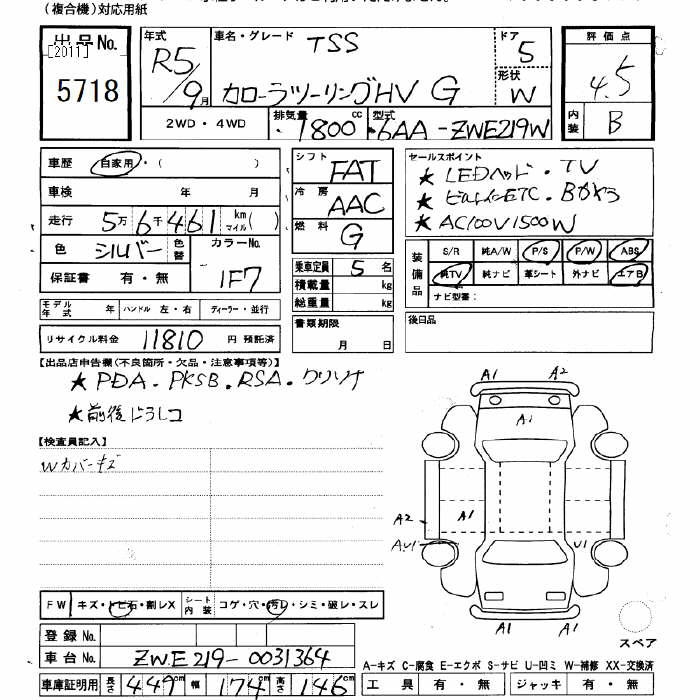 (複合機)対応用紙
出品No.
[2011]
5718
年式
R5/9月
車名・グレード
TSS
カローラツーリングHV G
ドア
5
形状
W
評価点
4.5
内装
B
2WD・4WD
排気量
1800cc
型式
6AA-ZWE219W
車歴
自家用・( )
車検 年 月
走行 5万6千461 km マイル( )
色 シルバー 色替 カラーNo. 1F7
保証書 有・無
シフト FAT
冷房 AAC
燃料 G
乗車定員 5 名
積載量 kg
総重量 kg
セールスポイント
★ LEDヘッド・TV
★ ビルトインETC・BOX3
★ AC100V1500W
装備品
S/R 純A/W P/S P/W ABS
純TV 純ナビ 革シート 外ナビ エアB
ナビ型番：
モデル年式 年 ハンドル 左・右 ディーラー・並行
リサイクル料金 11810 円 預託済
書類期限 月 日
後日品
【出品店申告欄(不良箇所・欠品・注意事項等)】
★ PDA・PKSB・RSA・クリソナ
★ 前後ドラレコ
【検査員記入】
Wカバーキズ
A1 A2
A1
A2 A1
AU1 U1
A1 A1
スペア
FW キズ・トビ石・割レX シート内装 コゲ・穴・汚レ・シミ・破レ・スレ
登録No.
車台No. ZWE219-0031364
車庫証明用 長さ 449cm 幅 174cm 高さ 146cm
A-キズ C-腐食 E-エクボ S-サビ U-凹ミ W-補修 XX-交換済
工具 有・無 ジャッキ 有・無